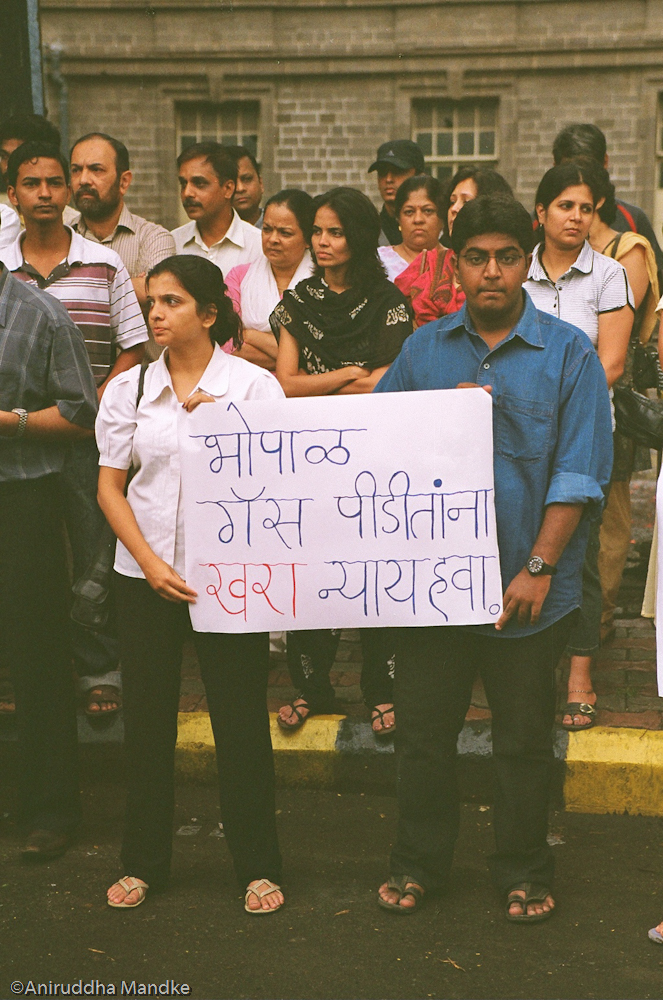 भोपाळ
गॅस पीडीतांना
खरा न्याय हवा.
©Aniruddha Mandke